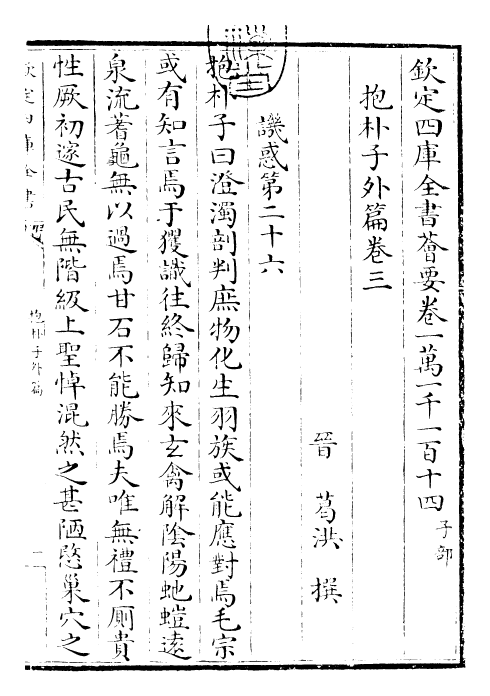 欽定四庫全書薈要卷一萬一千一百十四子部
抱朴子外篇卷三
晉葛洪撰
譏惑第二十六
抱朴子曰澄濁剖判庶物化生羽族或能應對焉毛宗
或有知言焉于玃識往終歸知來玄禽解陰陽虵螘遠
泉流蓍龜無以過焉甘石不能勝焉夫唯無禮不厠貴
性厥初邃古民無階級上聖悼混然之甚陋愍巢穴之
欽定四庫全書
抱朴子外篇